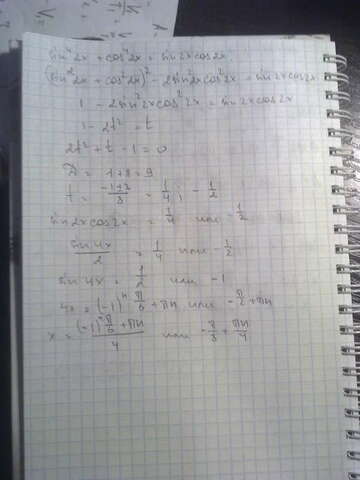 sin⁴2x + cos⁴2x = sin2xcos2x
(sin²2x + cos²2x)² - 2sin²2xcos²2x = sin2xcos2x
1 - 2sin²2xcos²2x = sin2xcos2x
1 - 2t² = t
2t² + t - 1 = 0
D = 1+8 = 9
t = (-1±3)/ = 1/4; -1/2
sin2xcos2x = 1/4 или -1/2
sin4x/2 = 1/4 или -1/2
sin4x = 1/2 или -1
4x = (-1)ⁿ π/6 + πn или -π/2 + πn
x = ((-1)ⁿ π/6 + πn)/4 или -π/8 + πn/4